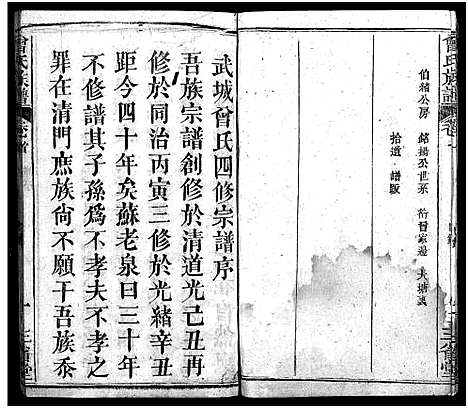 曾氏族譜
伯緒公房　銘揚公世系
拾遺·譜版
武城曾氏四修宗譜序
吾族宗譜創修於清道光己丑再
修於同治丙寅三修於光緒辛丑
距今四十年矣蘇老泉曰三十年
不修譜其子孫為不孝夫不孝之
罪在清門庶族尚不願干吾族忝
曾氏族譜
卷首
一
三省堂